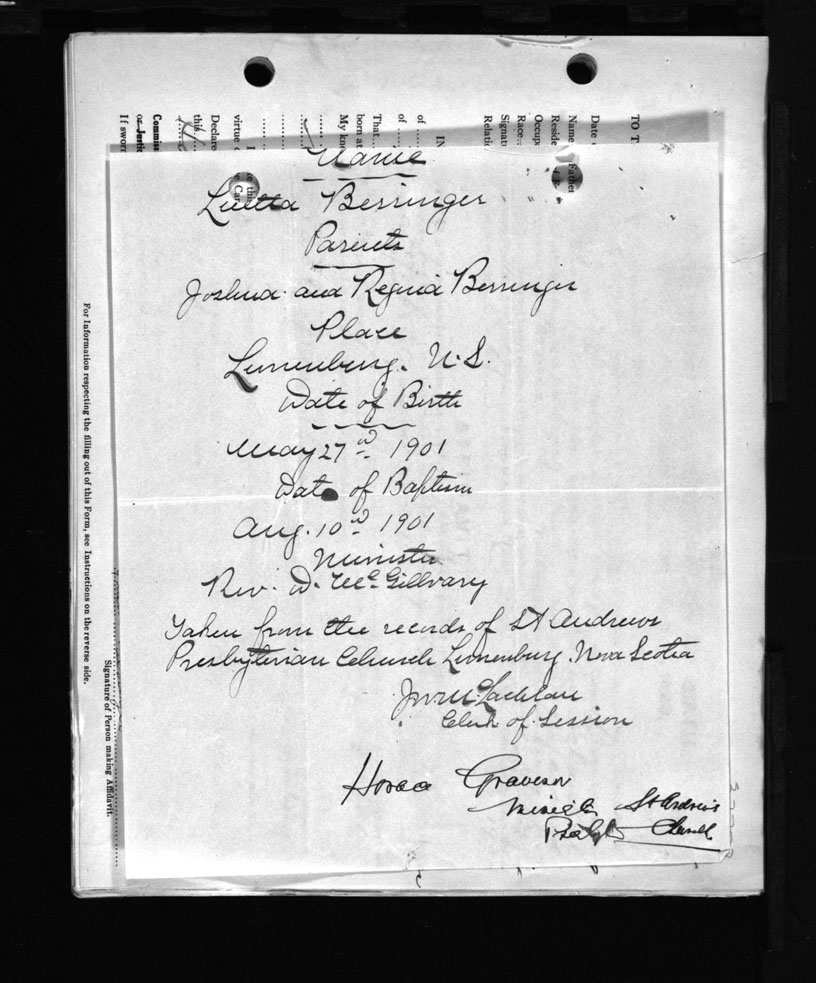 Name
Luetta Berringer
Parents
Joshua and Regina Berringer
Place
Lunenburg. N.S.
Date of Birth
May 27nd 1901
Date of Baptism
Aug. 10nd 1901
Minister
Rev. D. McGillvary
Taken from the records of St Andrews
Presbyterian Church Lunenburg. Nova Scotia
McLachlan
Clerk of Session
Horace
Minister St Andrew's
Church
TO T
Date
Name
Father
Reside
Occup
Race
Signat
Relati
IN
of
of
That
born at
My kno
I
virtue o
Declare
this
Commiss
or Justic
If sworn
For Information respecting the filling out of this Form, see Instructions on the reverse side.
Signature of Person making Affidavit.